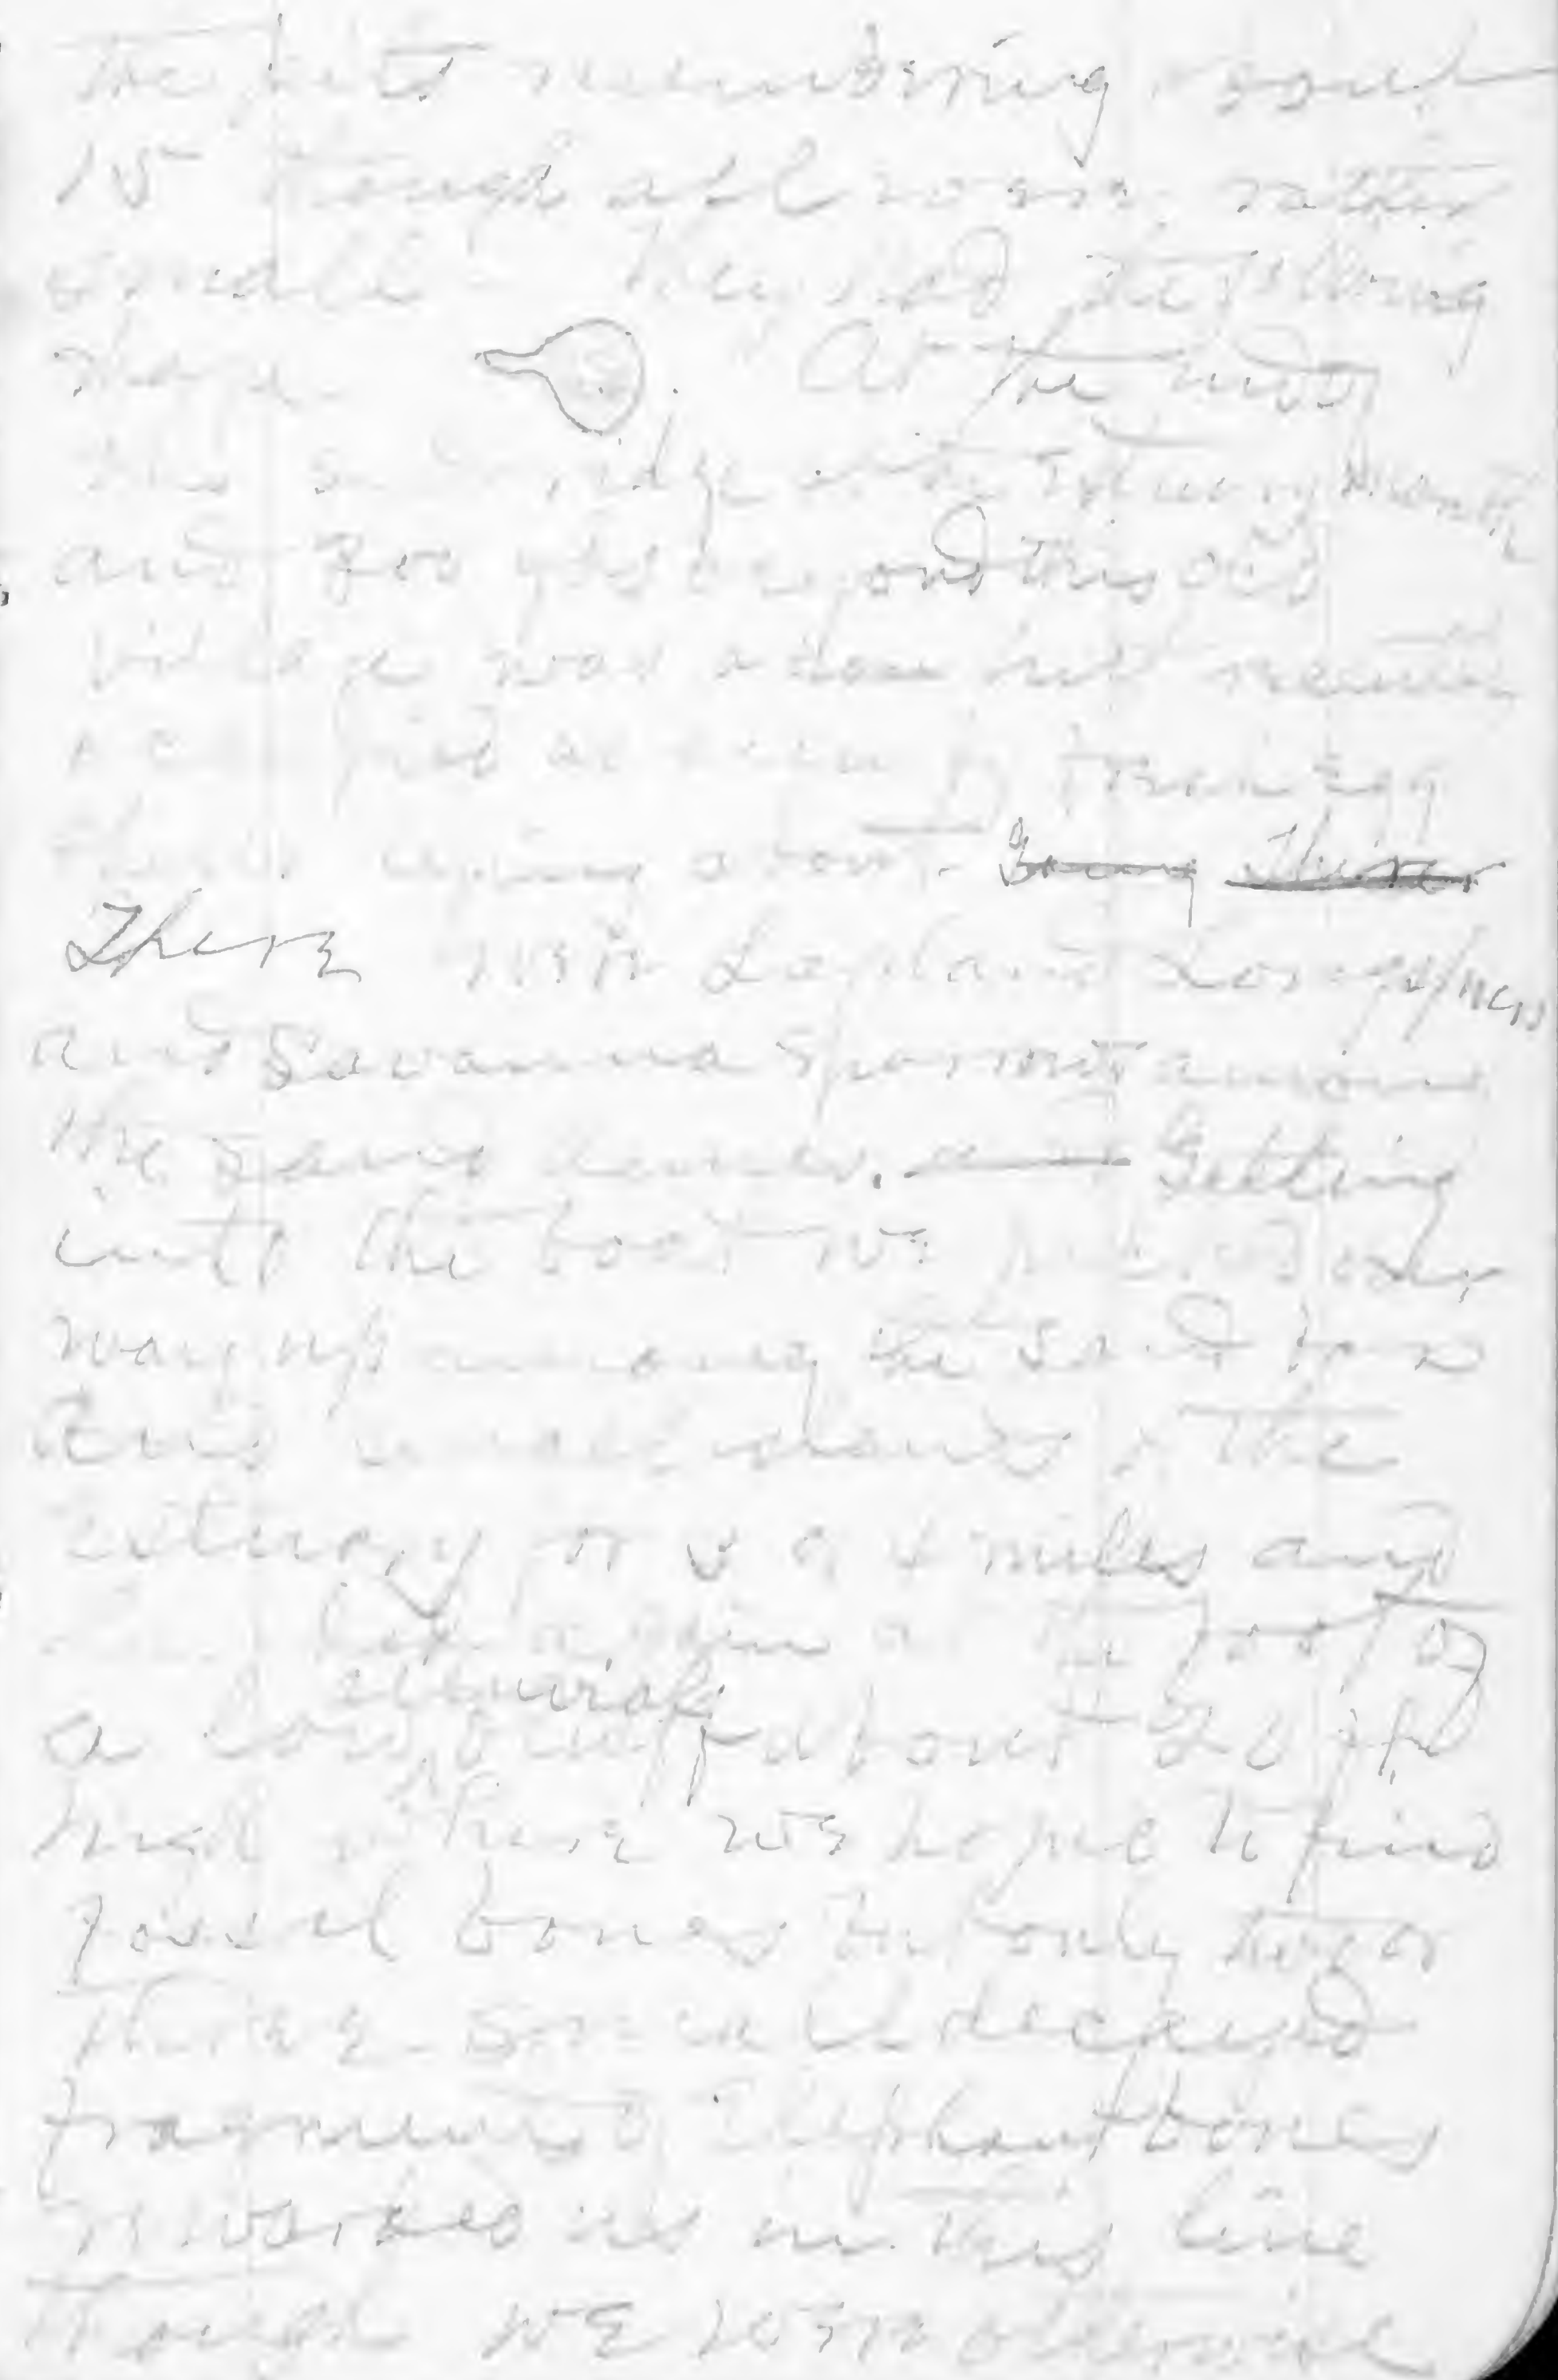 the pits numbering about
15 though all were rather
small - They had the following
shape. At the end
ridge at the Estuary mouth
and 300 yds beyond this old
village was a hut recently
occupied
lying about. Going There
There were Lapland Longspurs
and Savanna Sparrows among
the sand dunes. Getting
into the boat we pursued our
way up among the sand bars
and small islands of the
Estuary for 5 or 6 miles and
again at the foot of
a low alluvial bluff about 20 ft
high where we hoped to find
fossil bones but only two or
three small decayed
fragments of Elephant bones
rewarded us in this line
though we were otherwise